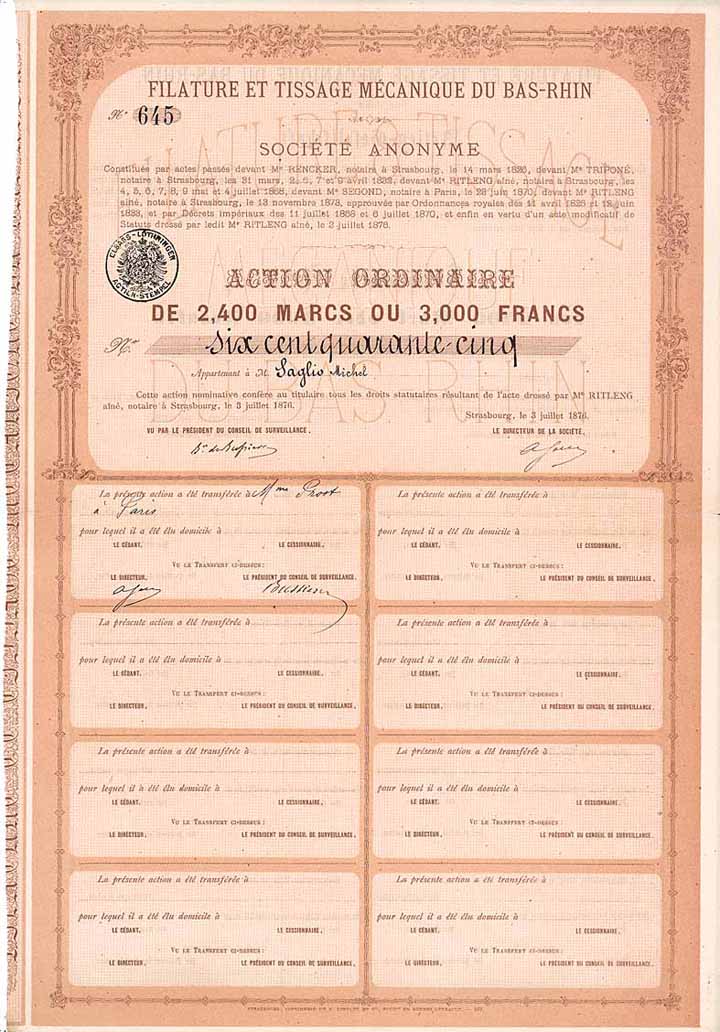 FILATURE ET TISSAGE MÉCANIQUE DU BAS-RHIN
No 645
SOCIÉTÉ ANONYME
Constituée par actes passés devant Me RENCKER, notaire à Strasbourg, le 14 mars 1826, devant Me TRIPONÉ,
notaire à Strasbourg, les 31 mars, 2, 6, 7 et 9 avril 1833, devant Me RITLENG aîné, notaire à Strasbourg, les
4, 5, 6, 7, 8, 9 mai et 4 juillet 1868, devant Me SEGOND, notaire à Paris, le 28 juin 1870, devant Me RITLENG
aîné, notaire à Strasbourg, le 13 novembre 1873, approuvée par Ordonnances royales des 11 avril 1826 et 12 juin
1833, et par Décrets impériaux des 11 juillet 1868 et 6 juillet 1870, et enfin en vertu d'un acte modificatif de
Statuts dressé par ledit Me RITLENG aîné, le 3 juillet 1876.
ELSASS-LOTHRINGEN
ACTIEN-STEMPEL
ACTION ORDINAIRE
DE 2,400 MARCS OU 3,000 FRANCS
No six cent quarante-cinq
Appartenant à M. Saglio Michel
Cette action nominative confère au titulaire tous les droits statutaires résultant de l'acte dressé par Me RITLENG
aîné, notaire à Strasbourg, le 3 juillet 1876.
Strasbourg, le 3 juillet 1876.
VU PAR LE PRÉSIDENT DU CONSEIL DE SURVEILLANCE. LE DIRECTEUR DE LA SOCIÉTÉ.
La présente action a été transférée à Mme Prost
à Paris
pour lequel il a été élu domicile à
LE CÉDANT. LE CESSIONNAIRE.
VU LE TRANSFERT CI-DESSUS:
LE DIRECTEUR. LE PRÉSIDENT DU CONSEIL DE SURVEILLANCE.
La présente action a été transférée à
pour lequel il a été élu domicile à
LE CÉDANT. LE CESSIONNAIRE.
VU LE TRANSFERT CI-DESSUS:
LE DIRECTEUR. LE PRÉSIDENT DU CONSEIL DE SURVEILLANCE.
La présente action a été transférée à
pour lequel il a été élu domicile à
LE CÉDANT. LE CESSIONNAIRE.
VU LE TRANSFERT CI-DESSUS:
LE DIRECTEUR. LE PRÉSIDENT DU CONSEIL DE SURVEILLANCE.
La présente action a été transférée à
pour lequel il a été élu domicile à
LE CÉDANT. LE CESSIONNAIRE.
VU LE TRANSFERT CI-DESSUS:
LE DIRECTEUR. LE PRÉSIDENT DU CONSEIL DE SURVEILLANCE.
La présente action a été transférée à
pour lequel il a été élu domicile à
LE CÉDANT. LE CESSIONNAIRE.
VU LE TRANSFERT CI-DESSUS:
LE DIRECTEUR. LE PRÉSIDENT DU CONSEIL DE SURVEILLANCE.
La présente action a été transférée à
pour lequel il a été élu domicile à
LE CÉDANT. LE CESSIONNAIRE.
VU LE TRANSFERT CI-DESSUS:
LE DIRECTEUR. LE PRÉSIDENT DU CONSEIL DE SURVEILLANCE.
La présente action a été transférée à
pour lequel il a été élu domicile à
LE CÉDANT. LE CESSIONNAIRE.
VU LE TRANSFERT CI-DESSUS:
LE DIRECTEUR. LE PRÉSIDENT DU CONSEIL DE SURVEILLANCE.
La présente action a été transférée à
pour lequel il a été élu domicile à
LE CÉDANT. LE CESSIONNAIRE.
VU LE TRANSFERT CI-DESSUS:
LE DIRECTEUR. LE PRÉSIDENT DU CONSEIL DE SURVEILLANCE.